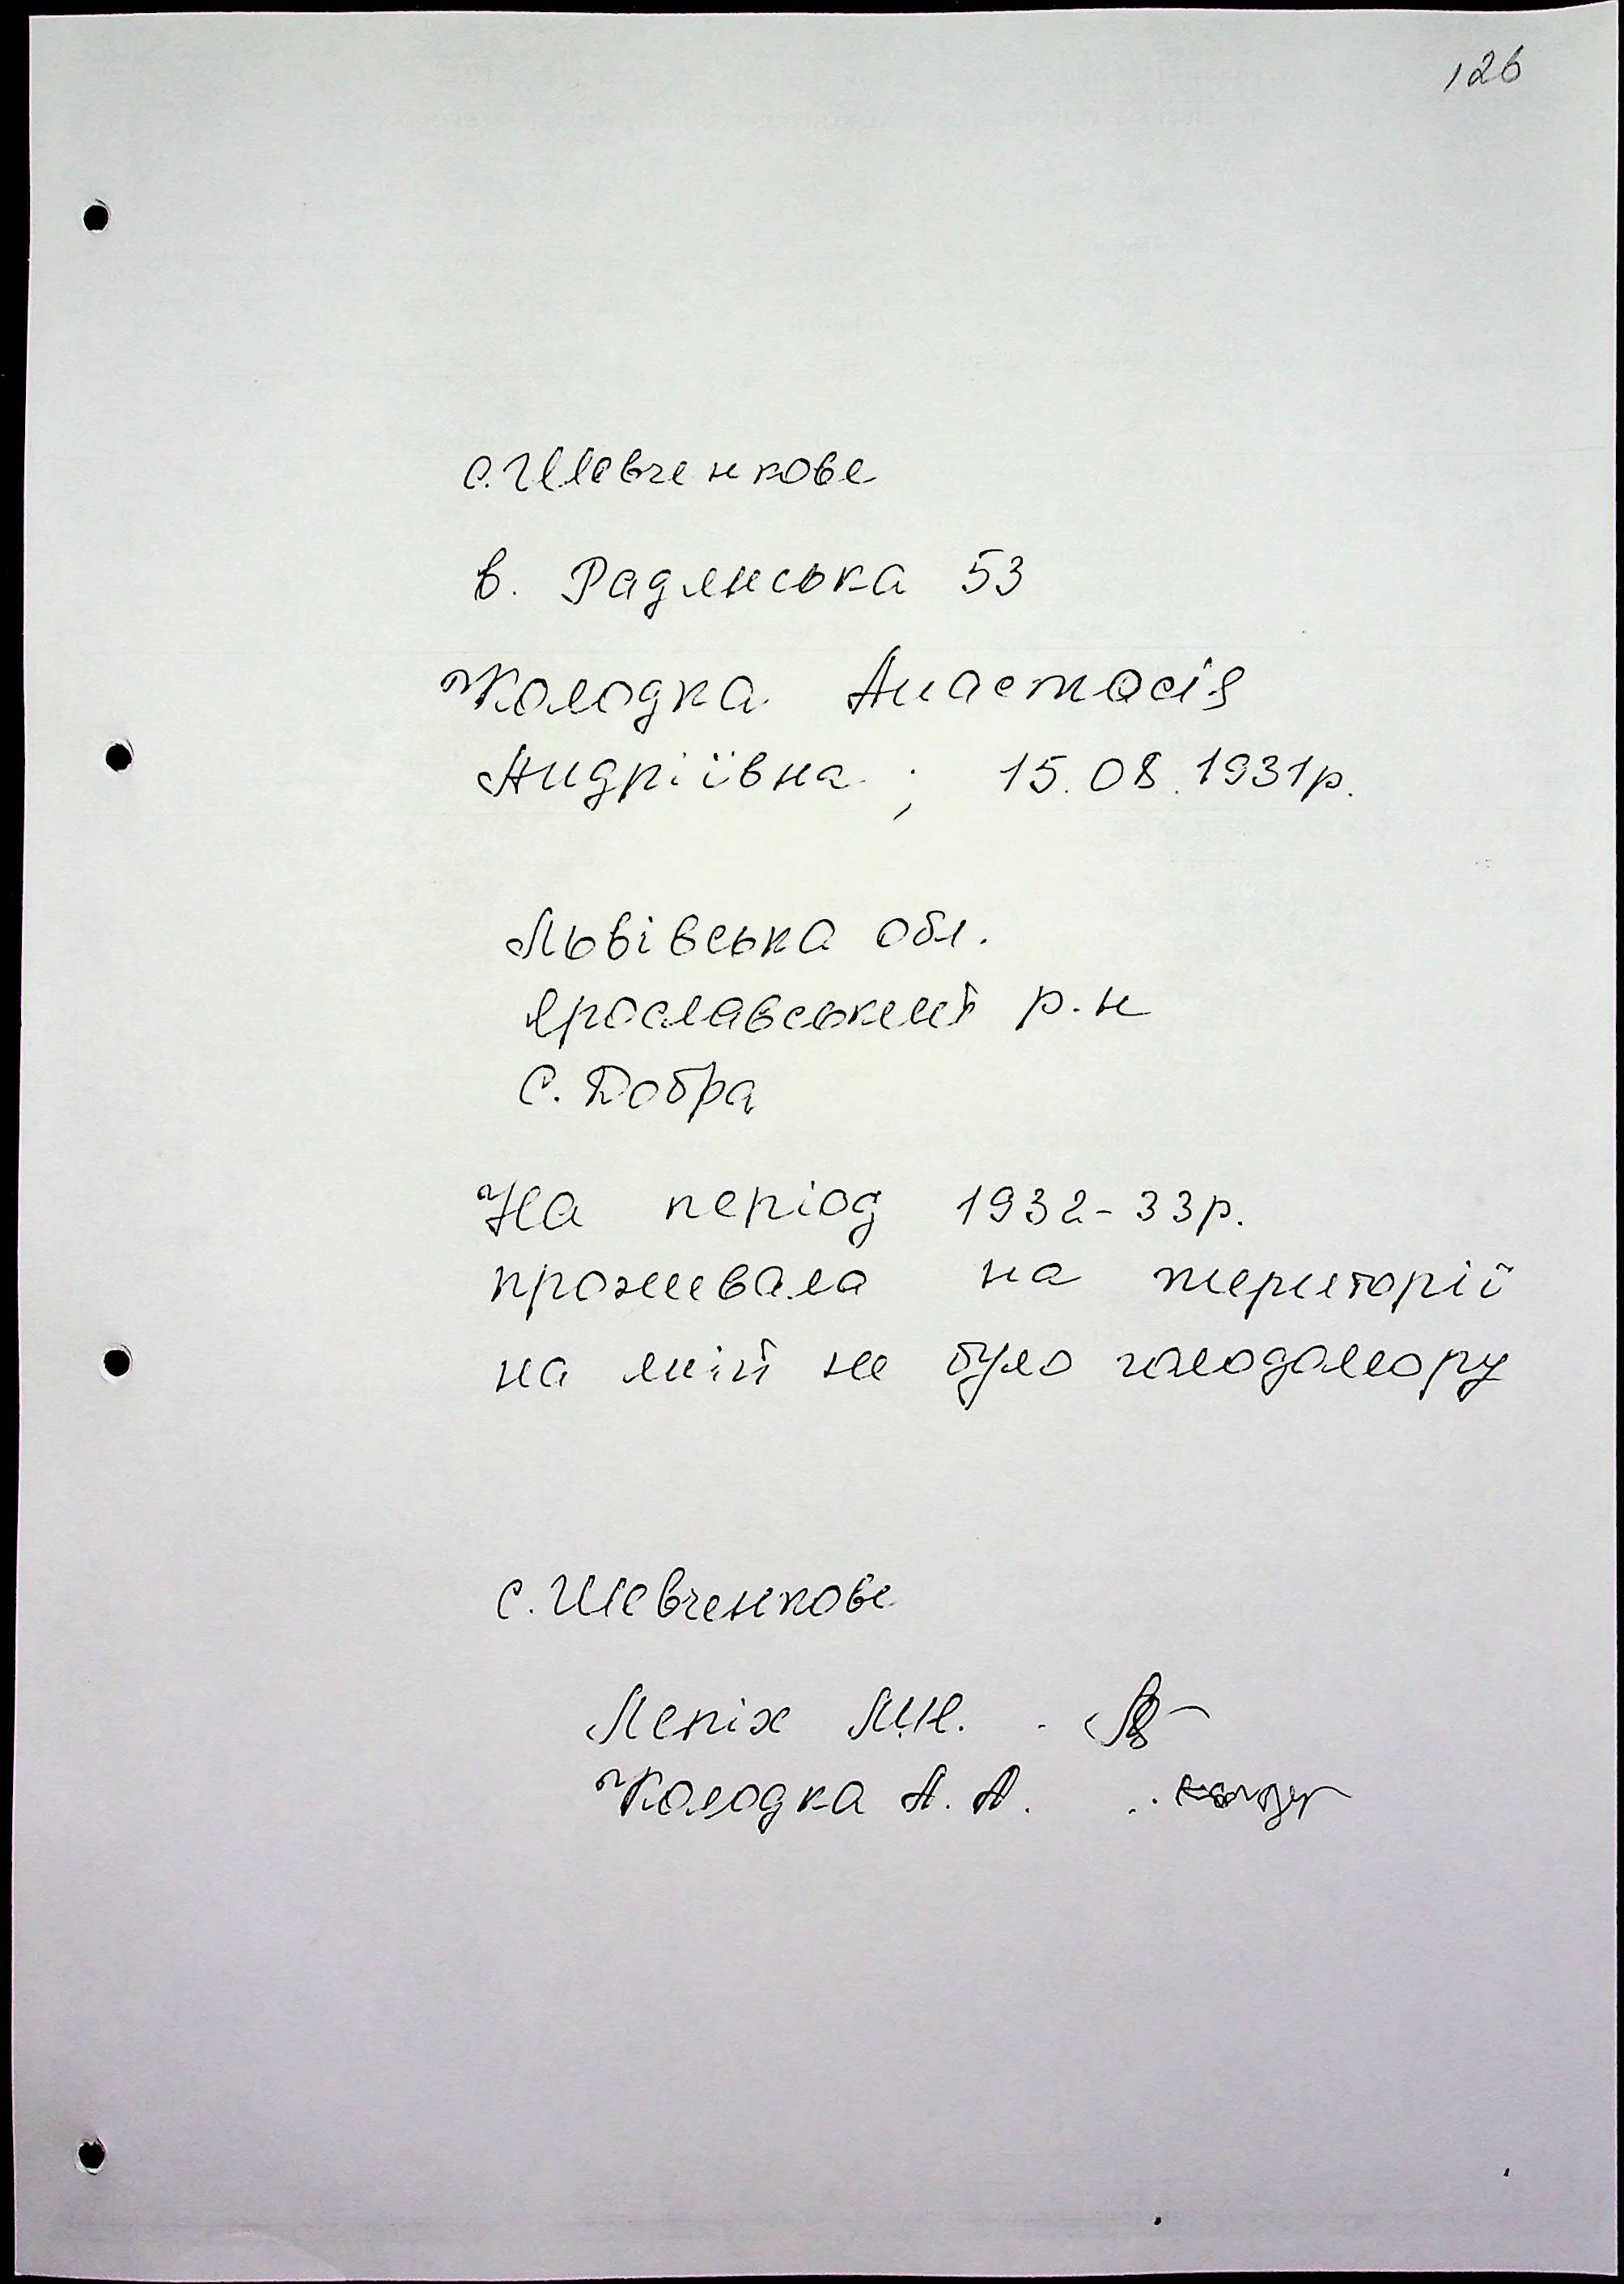 126
с. Шевченкове
в. Радянська 53
Колодка Анастасія
Андріївна ; 15.08.1931р.
Львівська обл.
Ярославський р-н
С. Добра
На період 1932-33р.
проживала на території
на якій не було голодомору
с. Шевченкове
Лепіх
Колодка А. А.